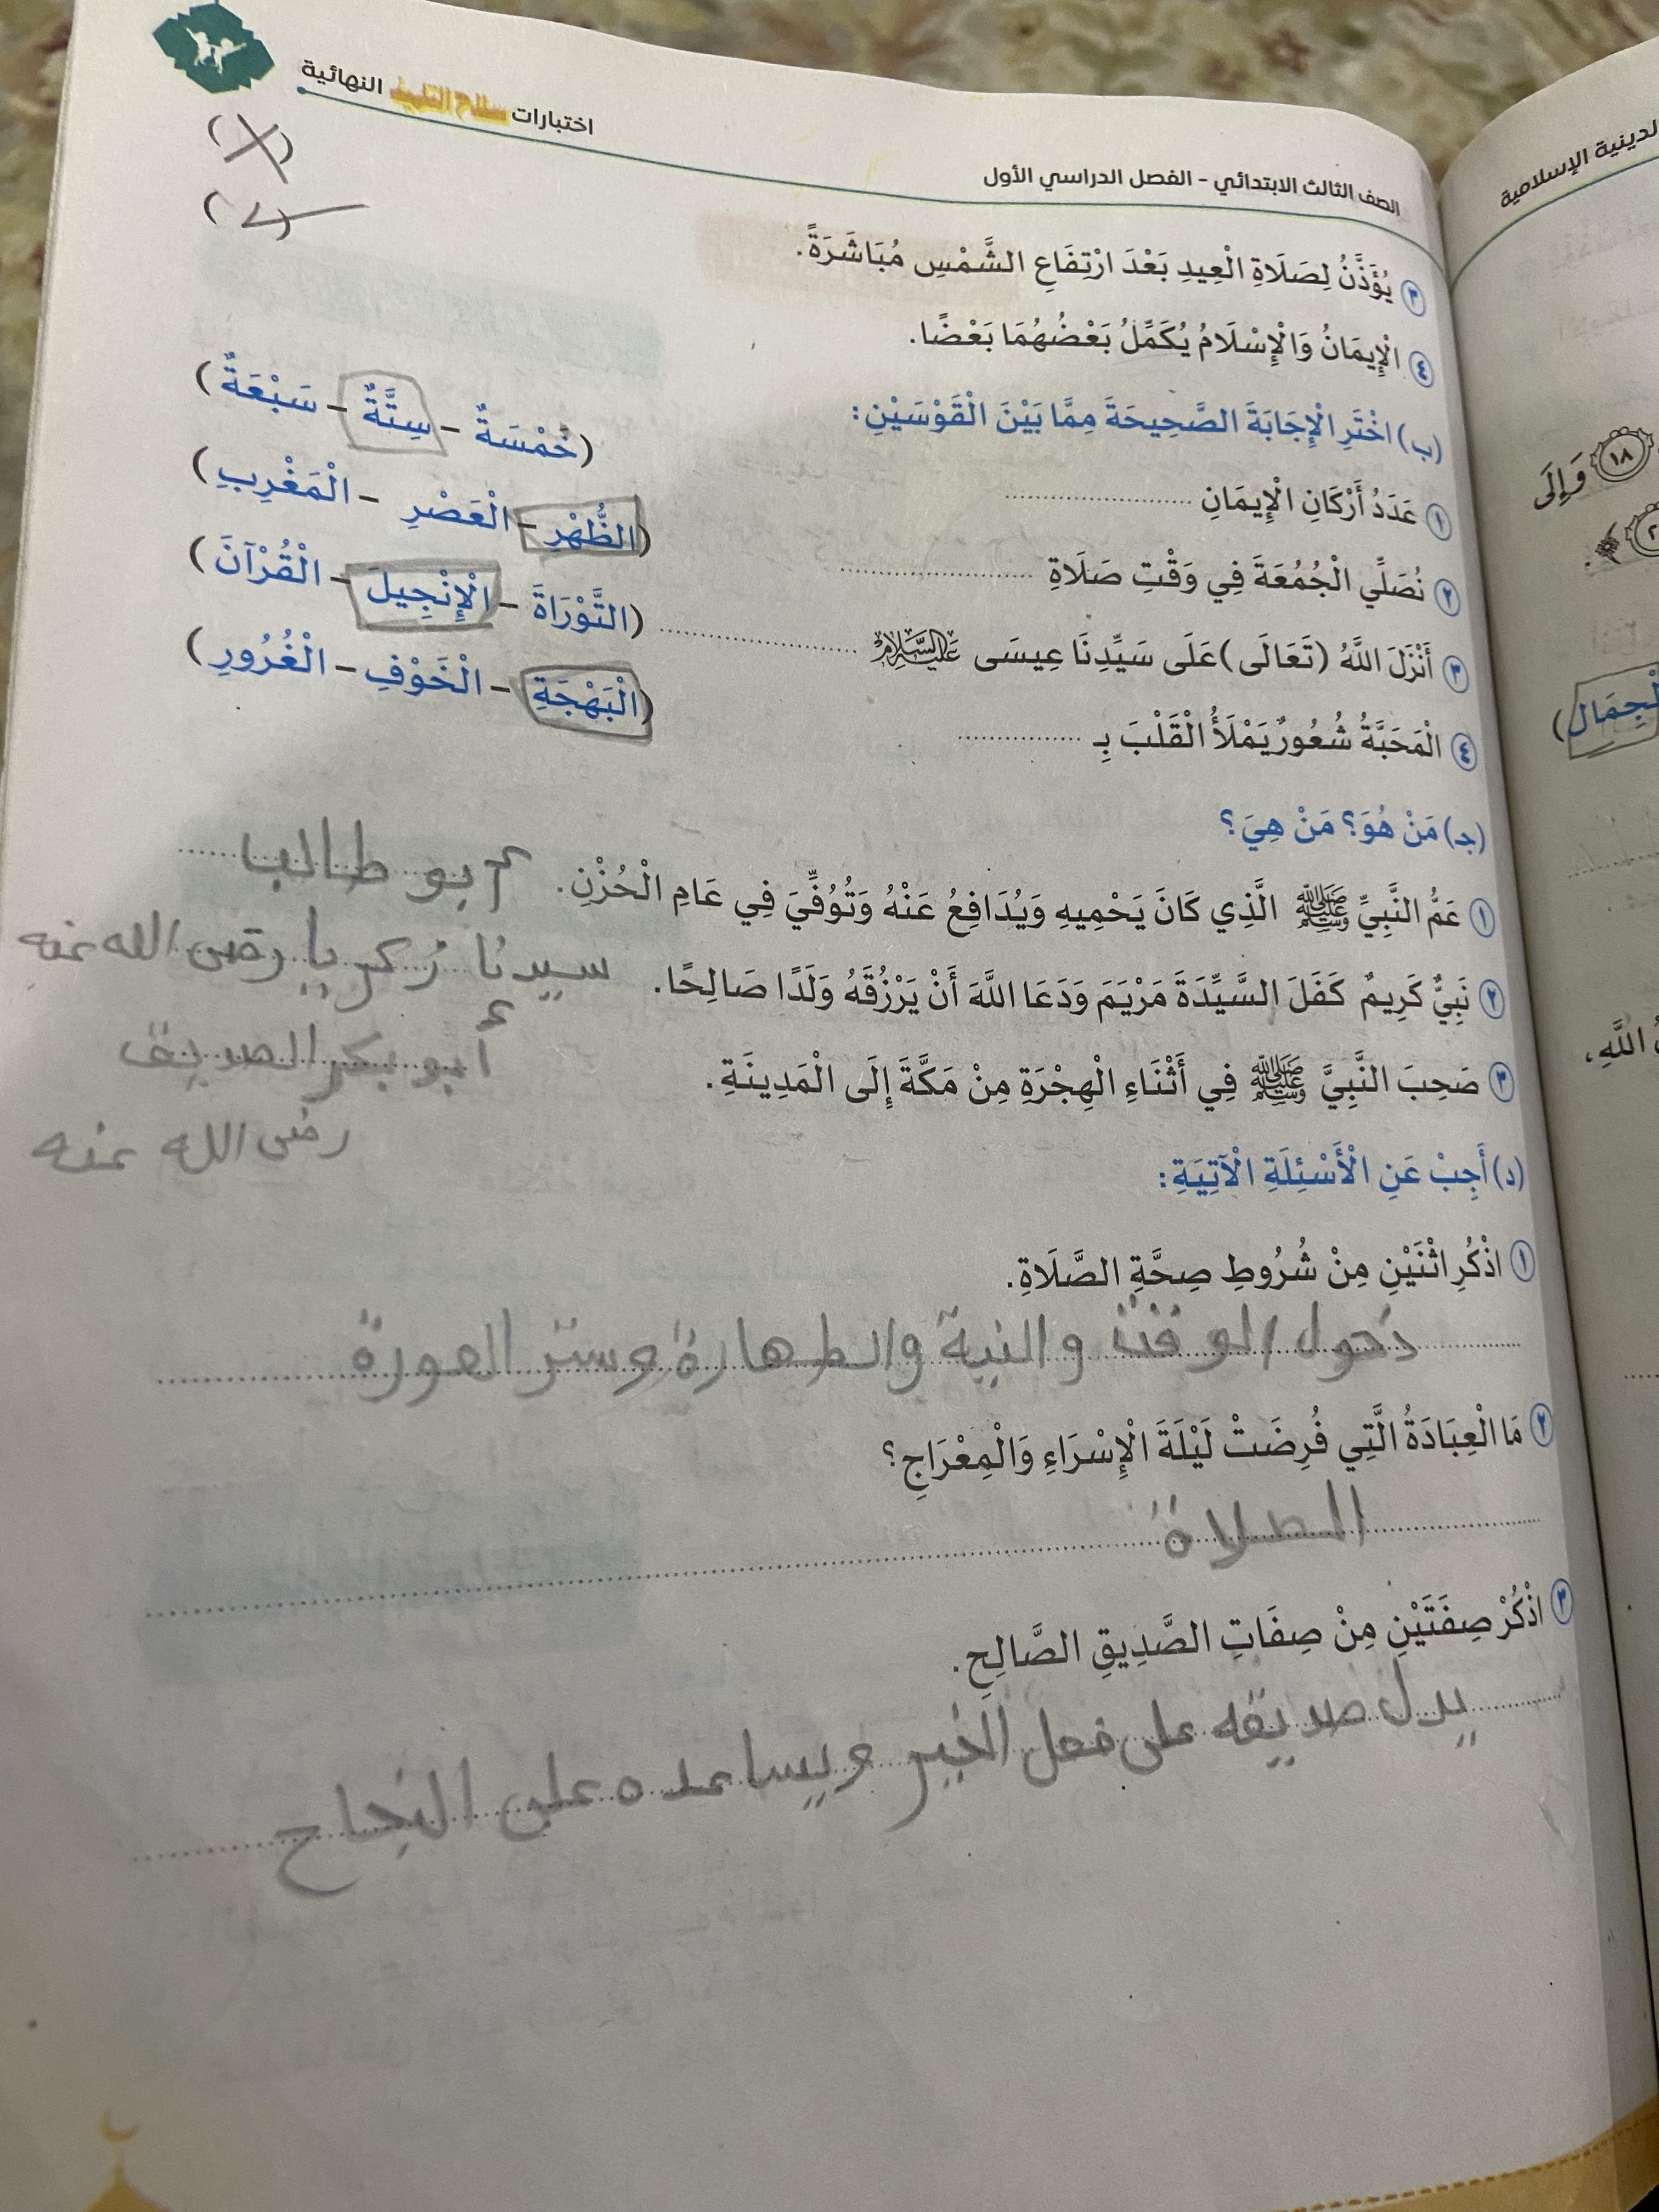 اختبارات سلاح التلميذ النهائية
الصف الثالث الابتدائي - الفصل الدراسي الأول
٣ يُؤَذَّنُ لِصَلَاةِ الْعِيدِ بَعْدَ ارْتِفَاعِ الشَّمْسِ مُبَاشَرَةً. (✗)
٤ الْإِيمَانُ وَالْإِسْلَامُ يُكَمِّلُ بَعْضُهُمَا بَعْضًا. (✓)
(ب) اخْتَرِ الْإِجَابَةَ الصَّحِيحَةَ مِمَّا بَيْنَ الْقَوْسَيْنِ:
١ عَدَدُ أَرْكَانِ الْإِيمَانِ .................... (خَمْسَةٌ - سِتَّةٌ - سَبْعَةٌ)
٢ نُصَلِّي الْجُمُعَةَ فِي وَقْتِ صَلَاةِ .................... (الظُّهْرِ - الْعَصْرِ - الْمَغْرِبِ)
٣ أَنْزَلَ اللَّهُ (تَعَالَى) عَلَى سَيِّدِنَا عِيسَى عَلَيْهِ السَّلَامُ .................... (التَّوْرَاةَ - الْإِنْجِيلَ - الْقُرْآنَ)
٤ الْمَحَبَّةُ شُعُورٌ يَمْلَأُ الْقَلْبَ بِـ ................ (الْبَهْجَةِ - الْخَوْفِ - الْغُرُورِ)
(ج) مَنْ هُوَ؟ مَنْ هِيَ؟
١ عَمُّ النَّبِيِّ ﷺ الَّذِي كَانَ يَحْمِيهِ وَيُدَافِعُ عَنْهُ وَتُوُفِّيَ فِي عَامِ الْحُزْنِ. أبو طالب
٢ نَبِيٌّ كَرِيمٌ كَفَلَ السَّيِّدَةَ مَرْيَمَ وَدَعَا اللَّهَ أَنْ يَرْزُقَهُ وَلَدًا صَالِحًا. سيدنا زكريا رضى الله عنه
٣ صَحِبَ النَّبِيَّ ﷺ فِي أَثْنَاءِ الْهِجْرَةِ مِنْ مَكَّةَ إِلَى الْمَدِينَةِ. أبو بكر الصديق
رضى الله عنه
(د) أَجِبْ عَنِ الْأَسْئِلَةِ الْآتِيَةِ:
١ اذْكُرِ اثْنَيْنِ مِنْ شُرُوطِ صِحَّةِ الصَّلَاةِ.
دخول الوقت والنية والطهارة وستر العورة
٢ مَا الْعِبَادَةُ الَّتِي فُرِضَتْ لَيْلَةَ الْإِسْرَاءِ وَالْمِعْرَاجِ؟
الصلاة
٣ اذْكُرْ صِفَتَيْنِ مِنْ صِفَاتِ الصَّدِيقِ الصَّالِحِ.
يدل صديقه على فعل الخير ويساعده على النجاح
الدينية الإسلامية
١٨ وَإِلَى
الْجِمَال)
اللَّهِ،